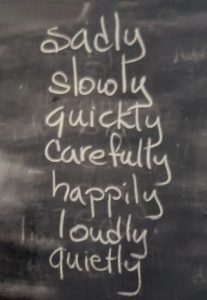 sadly
slowly
quickly
carefully
happily
loudly
quietly